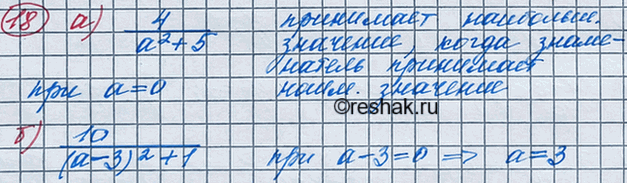 18 а) 4/(a²+5) принимает наибольш.
значение, когда знаме-
натель принимает
при a=0 наим. значение
©reshak.ru
б) 10/((a-3)²+1) при a-3=0 => a=3